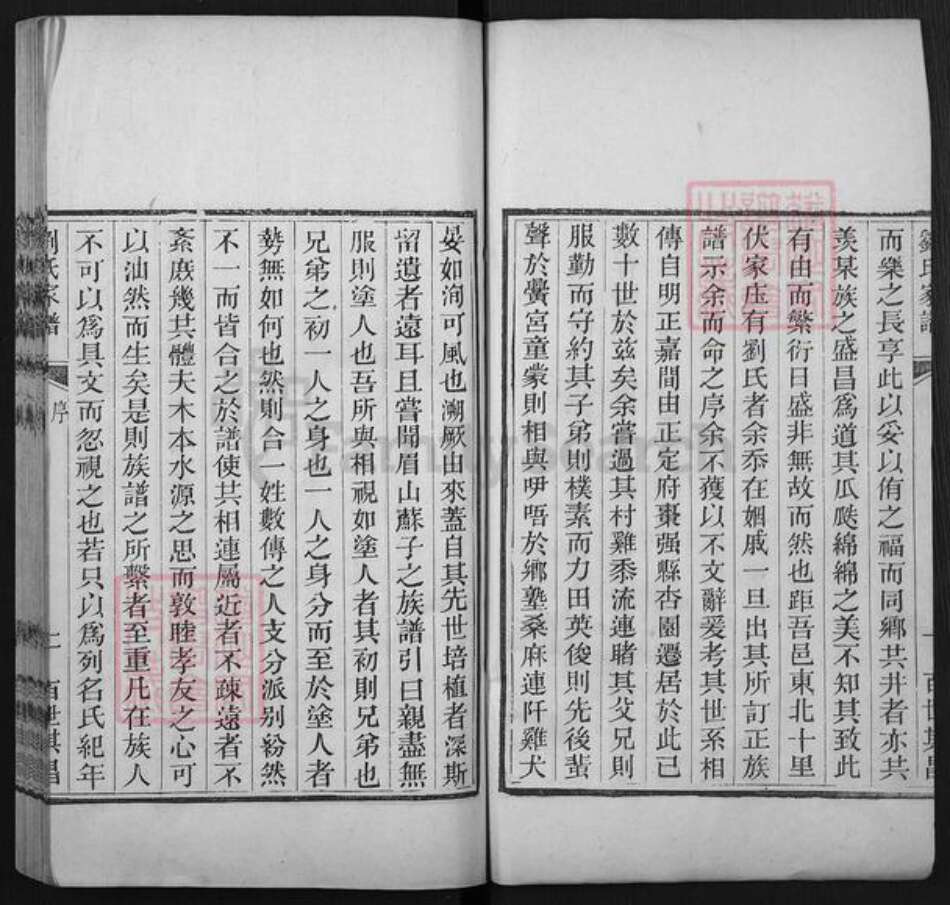 劉氏家譜
而樂之長享此以妥以侑之福而同鄉共井者亦共
羨某族之盛昌爲道其瓜瓞綿綿之美不知其致此
有由而繁衍日盛非無故而然也距吾邑東北十里
伏家庄有劉氏者余忝在姻戚一旦出其所訂正族
譜示余而命之序余不獲以不文辭爰考其世系相
傳自明正嘉間由正定府棗强縣杏園遷居於此已
數十世於兹矣余嘗過其村雞黍流連睹其父兄則
服勤而守約其子弟則樸素而力田英俊則先後蜚
聲於黌宮童蒙則相與咿唔於鄉塾桑麻連阡雞犬
晏如洵可風也溯厥由來蓋自其先世培植者深斯
留遺者遠耳且嘗聞眉山蘇子之族譜引曰親盡無
服則塗人也吾所與相視如塗人者其初則兄弟也
兄弟之初一人之身也一人之身分而至於塗人者
勢無如何也然則合一姓數傳之人支分派别紛然
不一而皆合之於譜使共相連屬近者不疎遠者不
紊庶幾共體夫木本水源之思而敦睦孝友之心可
以油然而生矣是則族譜之所繫者至重凡在族人
不可以爲具文而忽視之也若只以爲列名氏紀年
劉氏家譜
序
二
百世其昌
FamilySearch